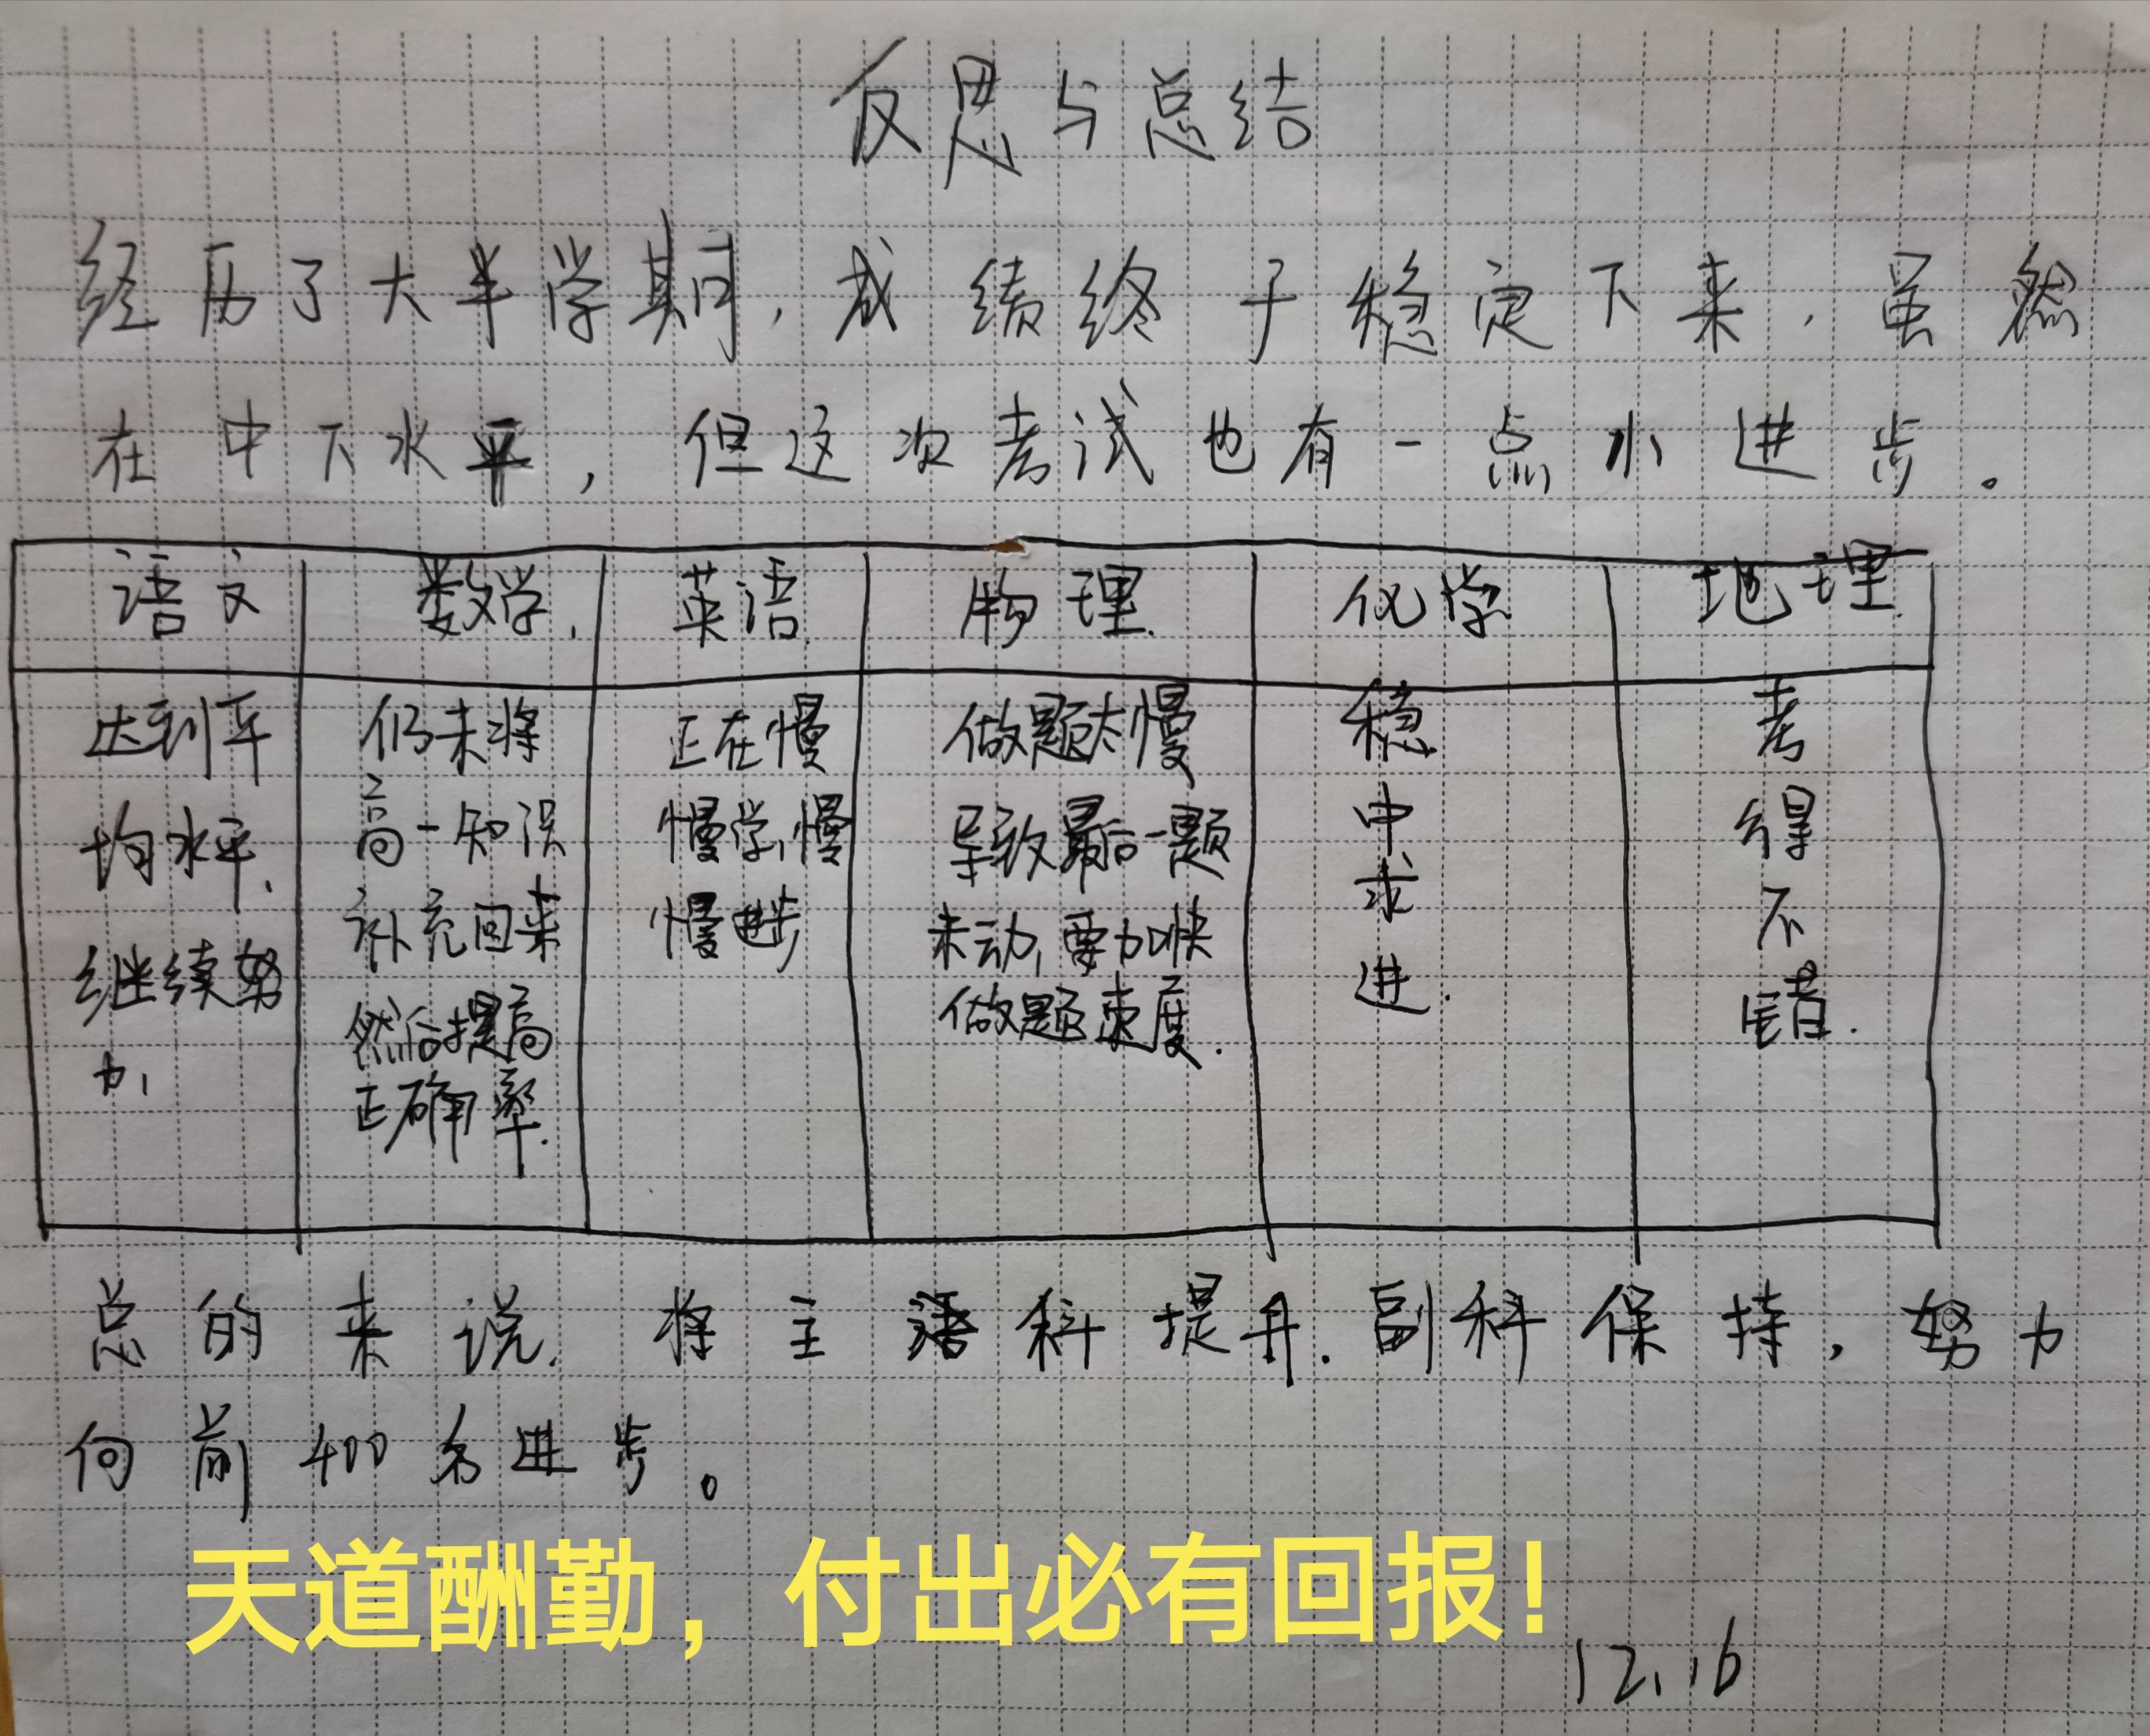 反思与总结
经历了大半学期，成绩终于稳定下来，虽然
在中下水平，但这次考试也有一点小进步。
语文 数学. 英语. 物理. 化学 地理.
达到平
均水平，
继续努
力，
仍未将
高一知识
补充回来
然后提高
正确率.
正在慢
慢学,慢
慢进步
做题太慢
导致最后一题
未动,要加快
做题速度.
稳
中
求
进.
考
得
不
错.
总的来说，将主科提升.副科保持，努力
向前400名进步。
天道酬勤，付出必有回报！
12.16